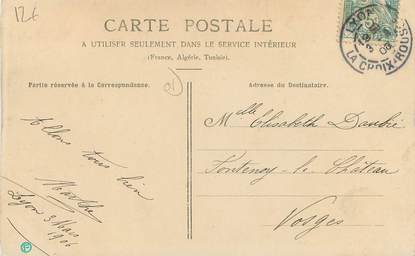 12€
CARTE POSTALE
A UTILISER SEULEMENT DANS LE SERVICE INTÉRIEUR
(France, Algérie, Tunisie).
Partie réservée à la Correspondance.
Adresse du Destinataire.
Allons tous bien
Marthe
Lyon 3 Mars
1906
Melle Elisabeth Daubié
Fontenoy-le-Château
Vosges
LYON
LA CROIX-ROUSSE